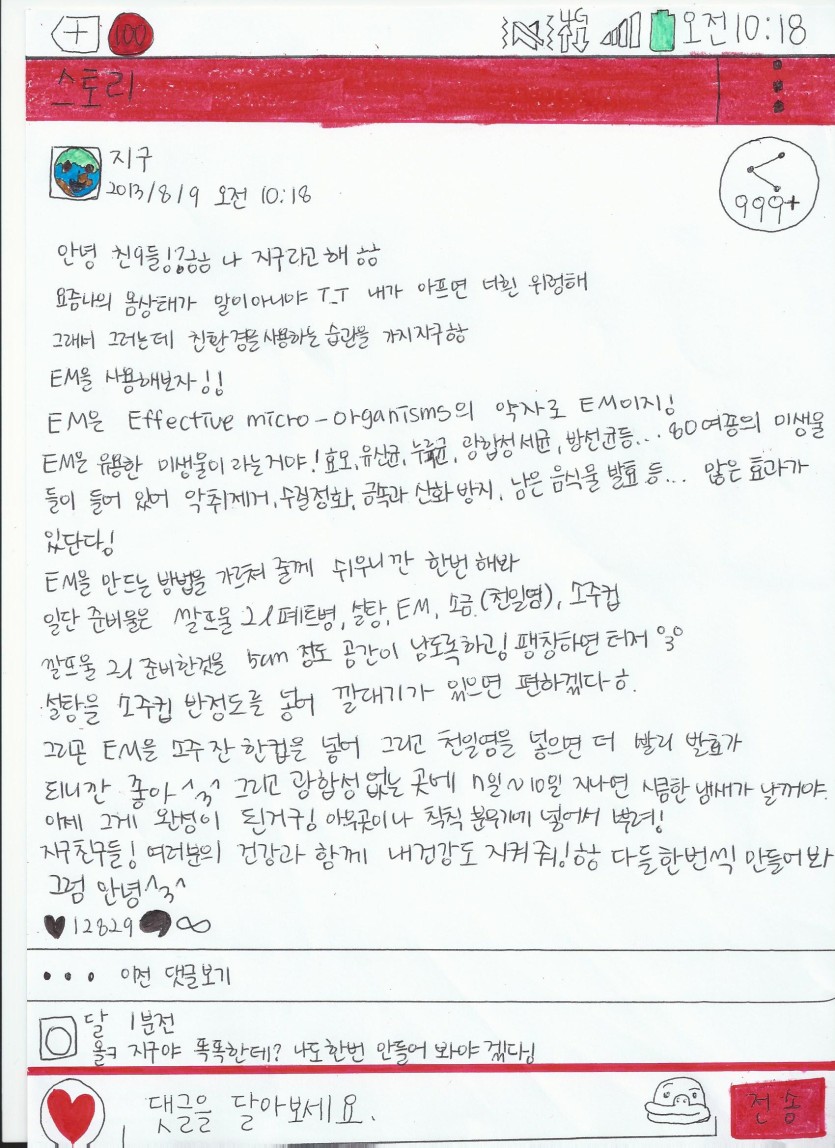 100 4G 오전 10:18
스토리
지구
2013/8/9 오전 10:18
999+
안녕 친9들!긍금 나 지구라고해 ㅎㅎ
요즘나의 몸상태가 말이아니야 T_T 내가 아프면 너흰 위렁해
그래서 그러는데 친환경을사용하는 습관을 가지자구ㅎㅎ
EM을 사용해보자!!
EM은 Effective micro-organisms의 약자로 EM이지!
EM은 유용한 미생물이라는거야! 효모, 유산균, 누룩균, 광합성세균, 방선균등... 80여종의 미생물
들이 들어 있어 악취제거, 수질정화, 금속과 산화방지, 남은 음식물 발효 등... 많은 효과가
있단다!
EM을 만드는 방법을 가르쳐 줄께 쉬우니깐 한번 해봐
일단 준비물은 쌀뜨물 2l페트병, 설탕, EM, 소금(천일염), 소주컵
쌀뜨물 2l 준비한것을 5cm 정도 공간이 남도록하고! 팽창하면 터져 °3°
설탕을 소주컵 반정도를 넣어 깔대기가 있으면 편하겠다ㅎ.
그리곤 EM을 소주잔 한컵을 넣어 그리고 천일염을 넣으면 더 빨리 발효가
되니깐 좋아^3^ 그리고 광합성 없는 곳에 7일~10일 지나면 시큼한 냄새가 날꺼야.
이제 그게 완성이 된거구! 아무곳이나 칙칙 분위기에 넣어서 뿌려!
지구친구들! 여러분의 건강과 함께 내건강도 지켜줘!ㅎㅎ 다들한번씩 만들어봐
그럼 안녕^3^
♥12829 ∞
••• 이전 댓글보기
달 1분전
올ㅋ 지구야 똑똑한데? 나도한번 만들어 봐야 겠다!
댓글을 달아보세요. 전송